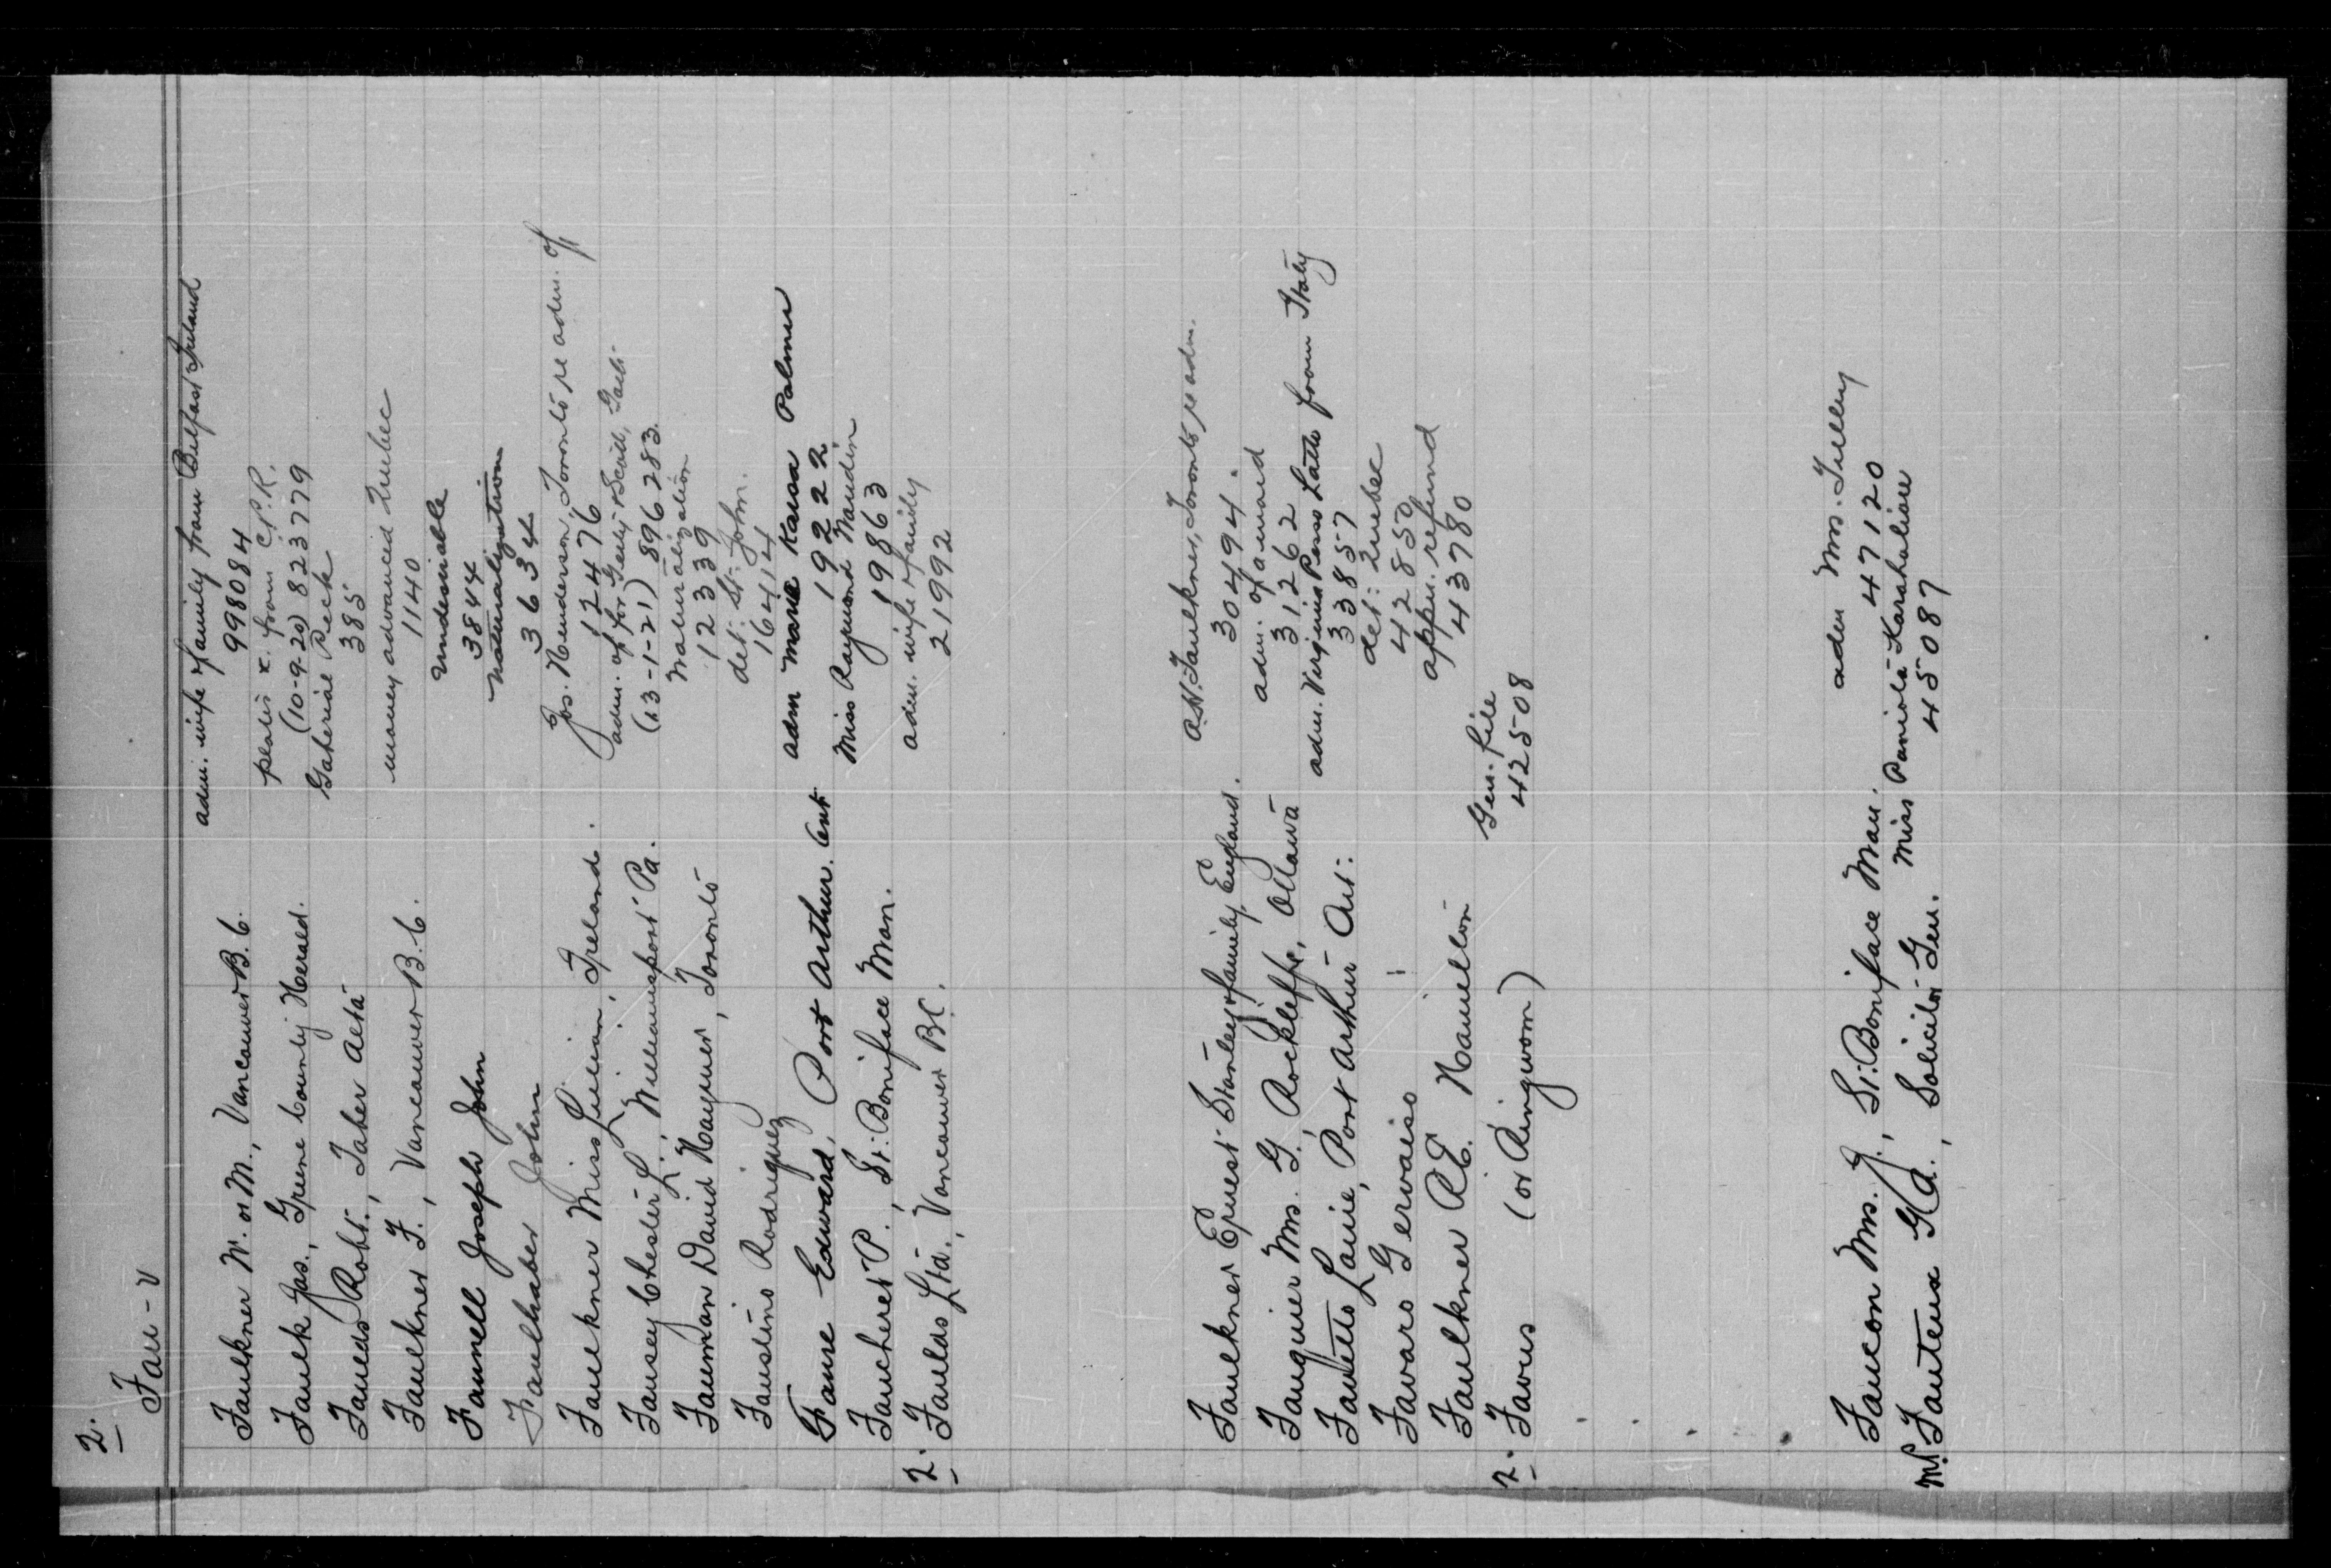 2.
Fau-v
Faulkner W. or M., Vancouver B.C. adm. wife & family from Belfast Ireland
998084
Faulk Jas., Greene County Herald. plates x. from C.P.R.
(10-9-20) 823779
Faulds Robt., Taber Alta Gaherial Peck
385
Faulkner F., Vancouver B.C. money advanced Quebec
1140
Faunell Joseph John undesirable
3844
Faulhaber John naturalization
3 6 3 4
Faulkner Miss Lilian, Ireland. Jos. Henderson, Toronto, re adm. of
12476
Fausey Chester L., Williamsport Pa. adm. of for
(13-1-21) 896283.
Fauman David Haymer, Toronto Naturalization
12339
Faustino Rodriguez det. St. John.
16414
Fause Edward, Port Arthur Ont adm Maria Kausa Palmer
19222
Faucheret P., St. Boniface Man. Miss Raymond Naudin
19863
2. Faulds Ltd., Vancouver B.C. adm. wife & family
21992
Faulkner Ernest Stanley & family, England. A.H. Faulkner, Toronto, re adm.
30494.
Fauquier Mrs. G., Rockliffe, Ottawa adm. of a maid
31262
Favetto Laurie, Port Arthur Ont. adm. Virginia Perso Latto from Italy
33857
Favaro Gervaiso det: Quebec
42850
Faulkner R.E. Hamilton appn. refund
43780
2. Favus (or Ringworm) Gen. file
42508
Faucon Mrs. J., St. Boniface Man. adm Mrs.
47120
Mr. Fauteux G.A., Solicitor Gen. Miss Paniota Karahaliou
45087